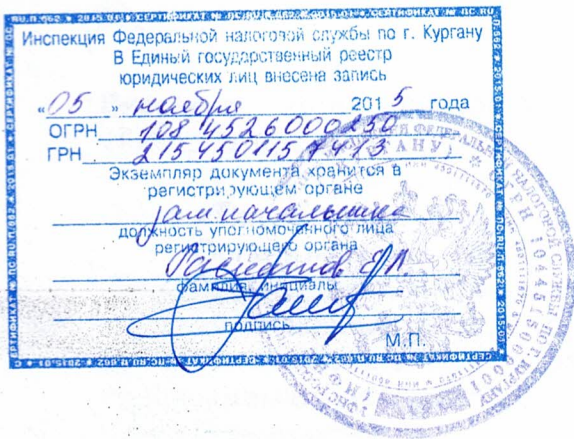 Инспекция Федеральной налоговой службы по г. Кургану
В Единый государственный реестр
юридических лиц внесена запись
«05» ноября 2015 года
ОГРН 1084526000250
ГРН
Экземпляр документа хранится в
регистрирующем органе
зам. начальника
должность уполномоченного лица
регистрирующего органа
фамилия, инициалы
подпись
М.П.